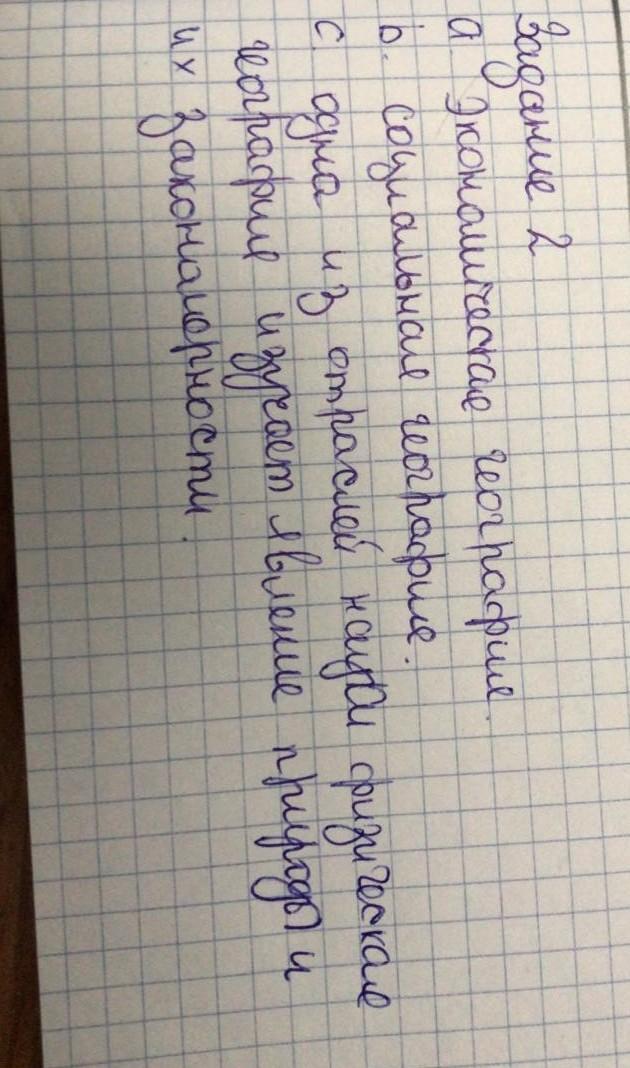 Задание 2
a. Экономическая география.
b. социальная география.
c. одна из отраслей науки физическая
география изучает явление природы и
их закономерности.